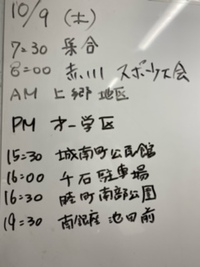 10/9 (土)
7:30 集合
8:00 赤川 スポーツ大会
AM 上郷地区
PM 才一学区
15:30 城南町公民館
16:00 千石駐車場
16:30 睦町南部公園
19:30 南銀座 池田前